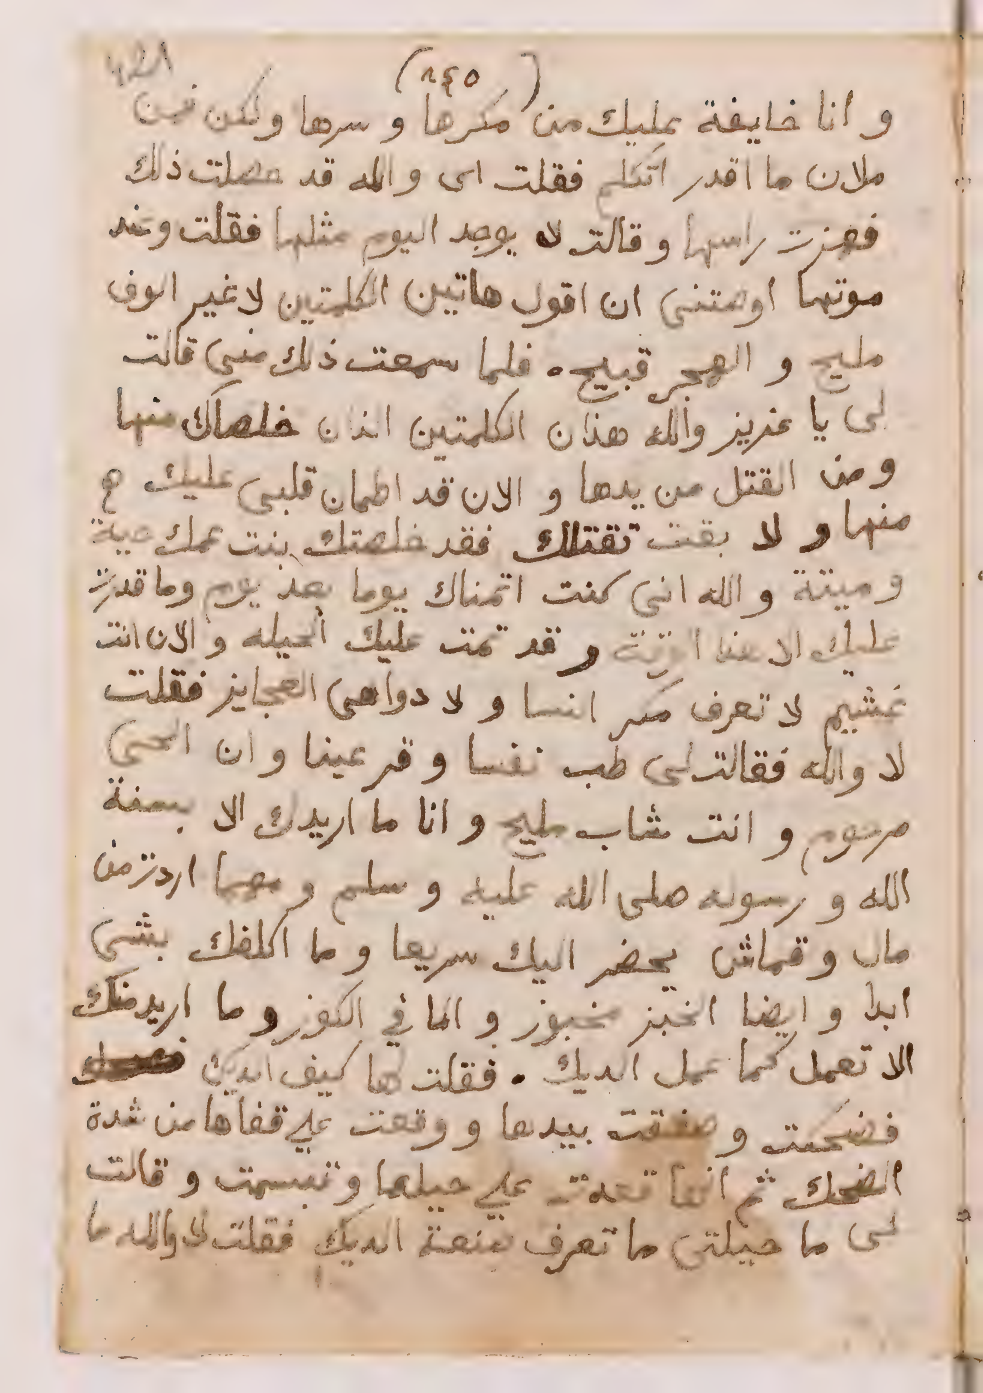 (٨٤٥)
و انا خايفة عليك من مكرها و سرها ولكن فمى
ملان ما اقدر اتكلم فقلت اى والله قد حصلت ذلك
فهزت راسها و قالت لا يوجد اليوم مثلها فقلت وعند
موتها اوصتنى ان اقول هاتين الكلمتين لا غير الوفى
مليح و الهجر قبيح • فلما سمعت ذلك منى قالت
لى يا عزيز والله هذان الكلمتين الذان خلصاك منها
ومن القتل من يدها و الان قد اطمان قلبى عليك
منها و لا بقت تقتلك فقد خلصتك بنت عمك حية
وميتة و الله انى كنت اتمناك يوما بعد يوم وما قدرت
عليك الا و قد تمت عليك الحيله و الان انت
غشيم لا تعرف مكر النسا و لا دواهى العجايز فقلت
لا والله فقالت لى طب نفسا و قر عينا و ان
مرحوم و انت شاب مليح و انا ما اريدك الا بسنة
الله و رسوله صلى الله عليه و سلم و مهما اردت من
مال و قماش يحضر اليك سريعا و ما اكلفك بشى
ابدا و ايضا الخبز مخبوز و الما في الكوز و ما اريد منك
الا تعمل كما عمل الديك • فقلت لها كيف الديك
فضحكت و صفقت بيدها و وقعت على قفاها من شدة
الضحك ثم انها قعدت على حيلها و تبسمت و قالت
لى ما حيلتى ما تعرف صنعة الديك فقلت لا والله ما